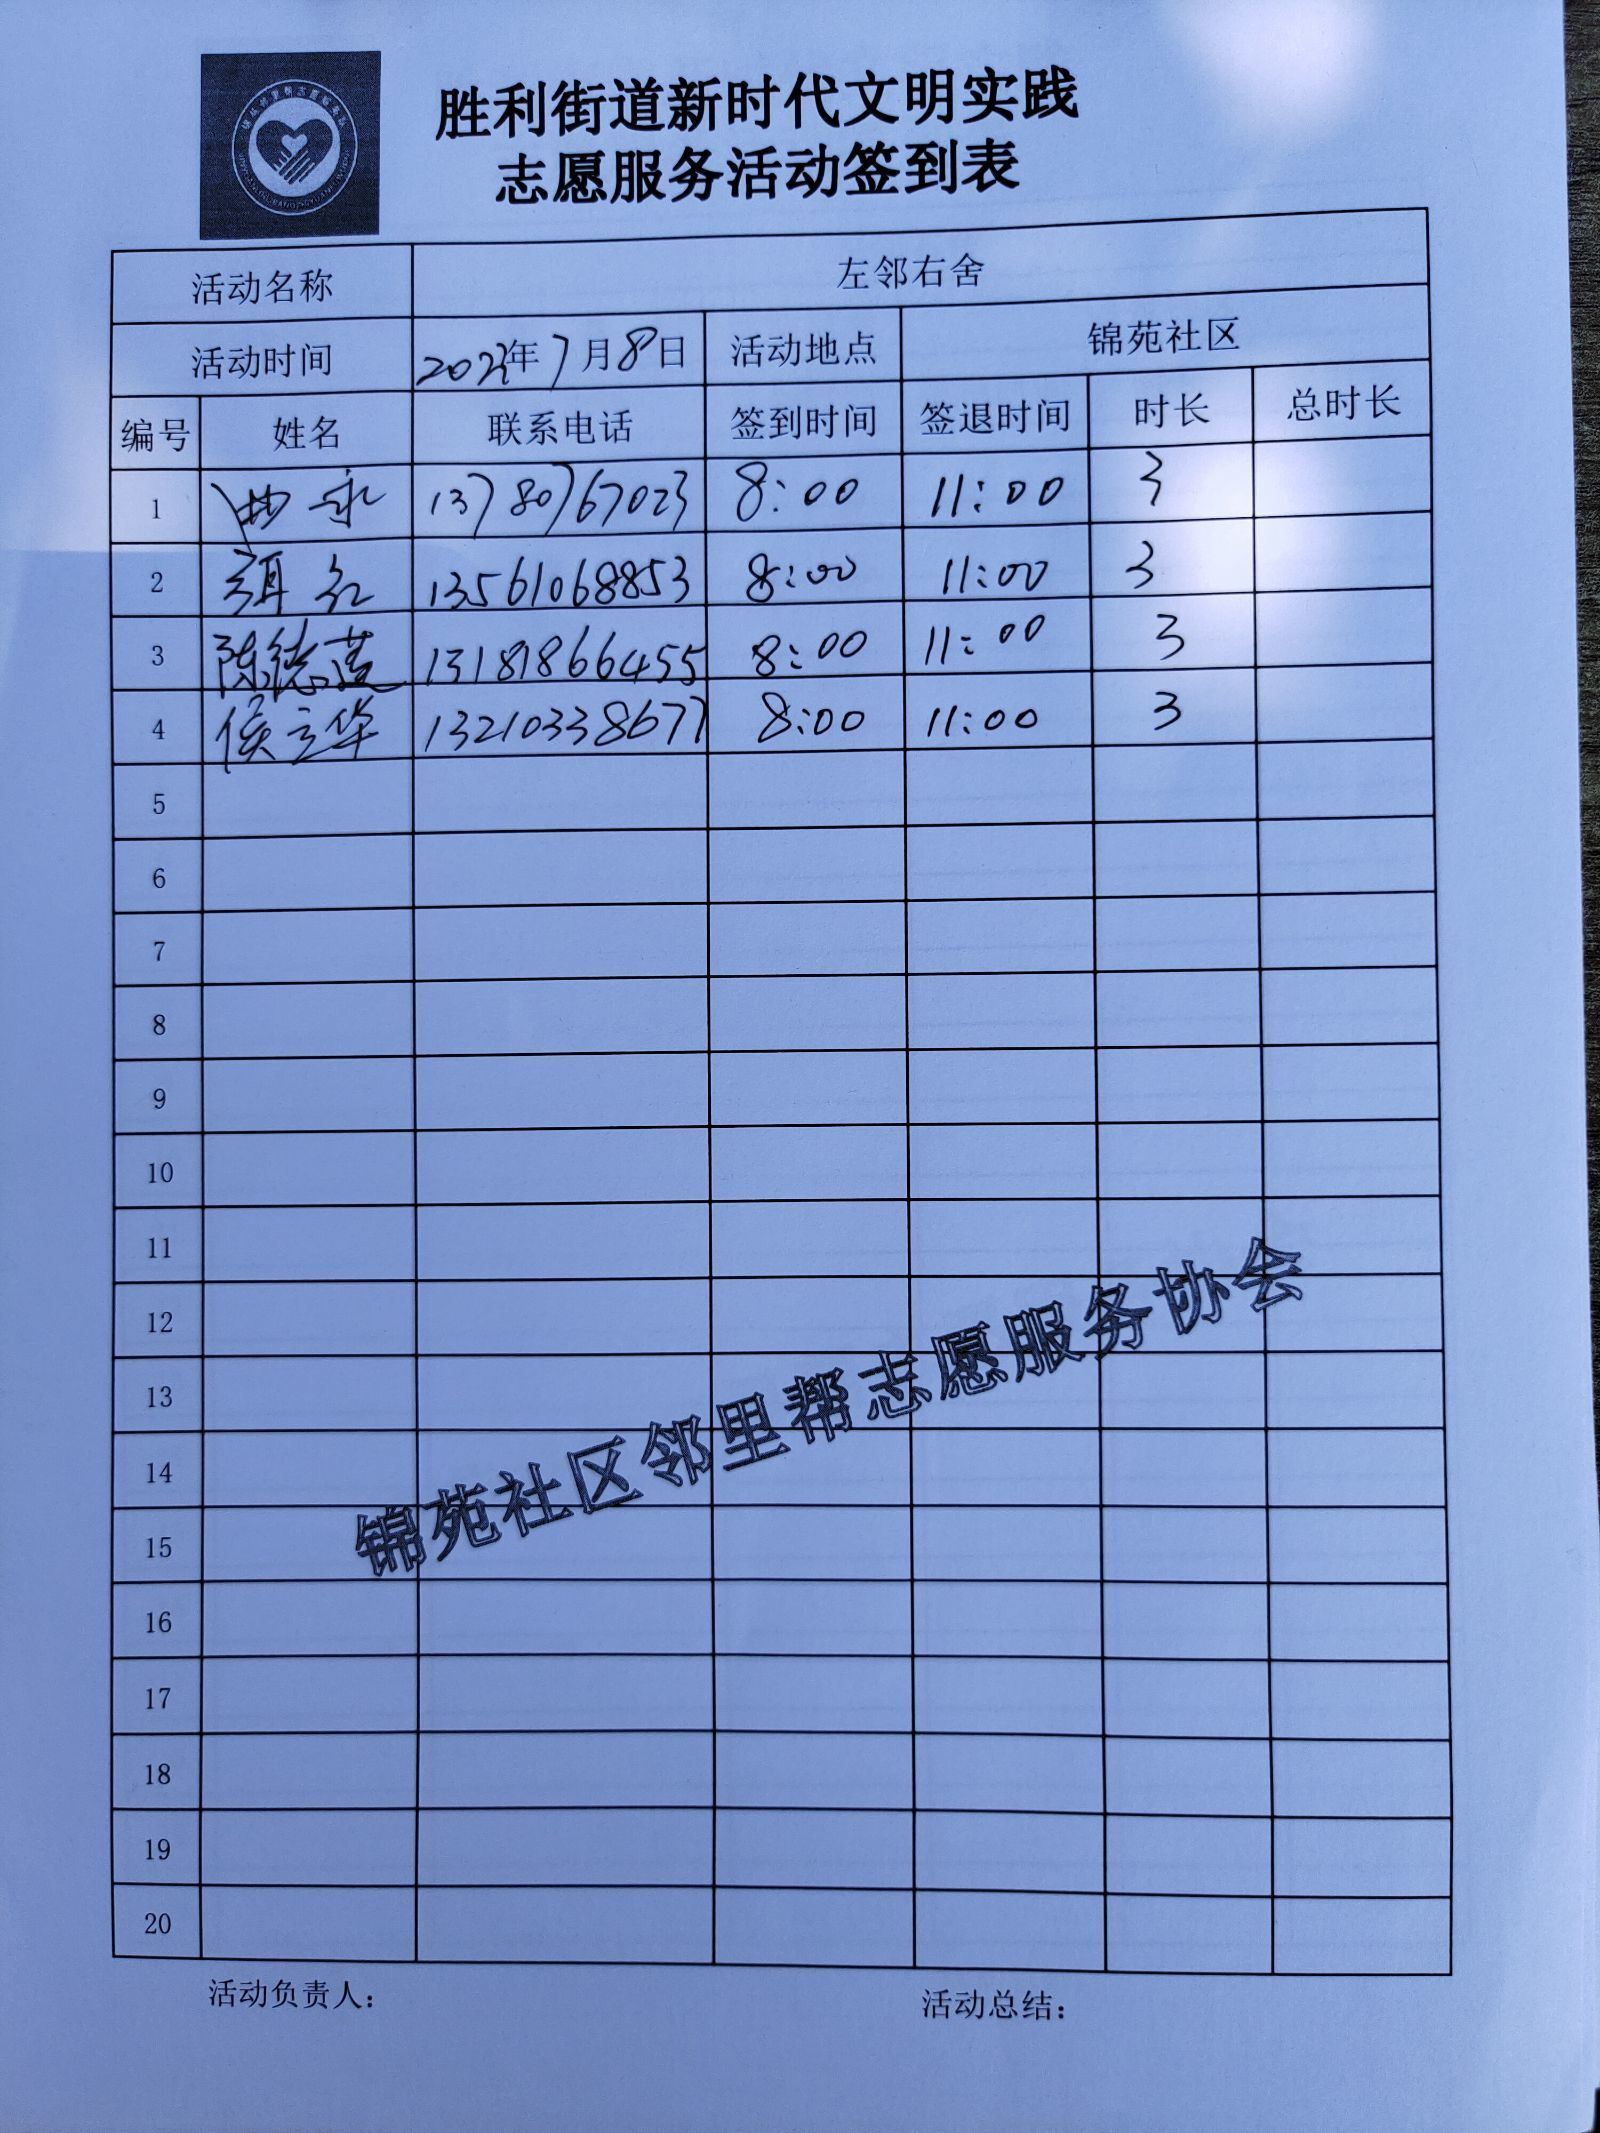 胜利街道新时代文明实践
志愿服务活动签到表
活动名称 左邻右舍
活动时间 2023年7月8日 活动地点 锦苑社区
编号 姓名 联系电话 签到时间 签退时间 时长 总时长
1 13780767023 8:00 11:00 3
2 13561068853 8:00 11:00 3
3 陈德 13181866455 8:00 11:00 3
4 侯立华 13210338677 8:00 11:00 3
5
6
7
8
9
10
11
12
13
14
15
16
17
18
19
20
锦苑社区邻里帮志愿服务协会
活动负责人： 活动总结：